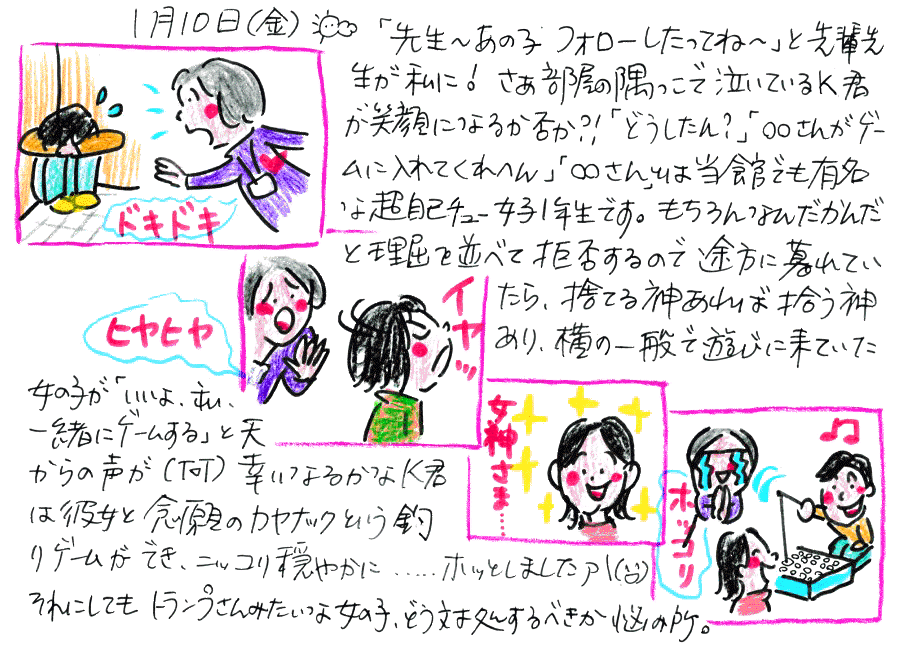 1月10日(金)
「先生～あの子 フォローしたってね～」と先輩先
生が私に！さあ部屋の隅っこで泣いているK君
が笑顔になるか否か?!「どうしたん？」「○○さんがゲー
ムに入れてくれへん」「○○さん」は当館でも有名
な超自己チュー女子1年生です。もちろんなんだかんだ
と理屈を並べて拒否するので途方に暮れてい
たら、捨てる神あれば拾う神
あり、横の一般で遊びに来ていた
女の子が「いいよ、私、
一緒にゲームする」と天
からの声が(何)幸いなるかなK君
は彼女と念願のカヤナックという釣
りゲームができ、ニッコリ穏やかに……ホッとしましたァ!
それにしてもトランプさんみたいな女の子、どう対処するべきか悩み所。
ドキドキ
ヒヤヒヤ
イヤッ
女神さま…
ホッコリ